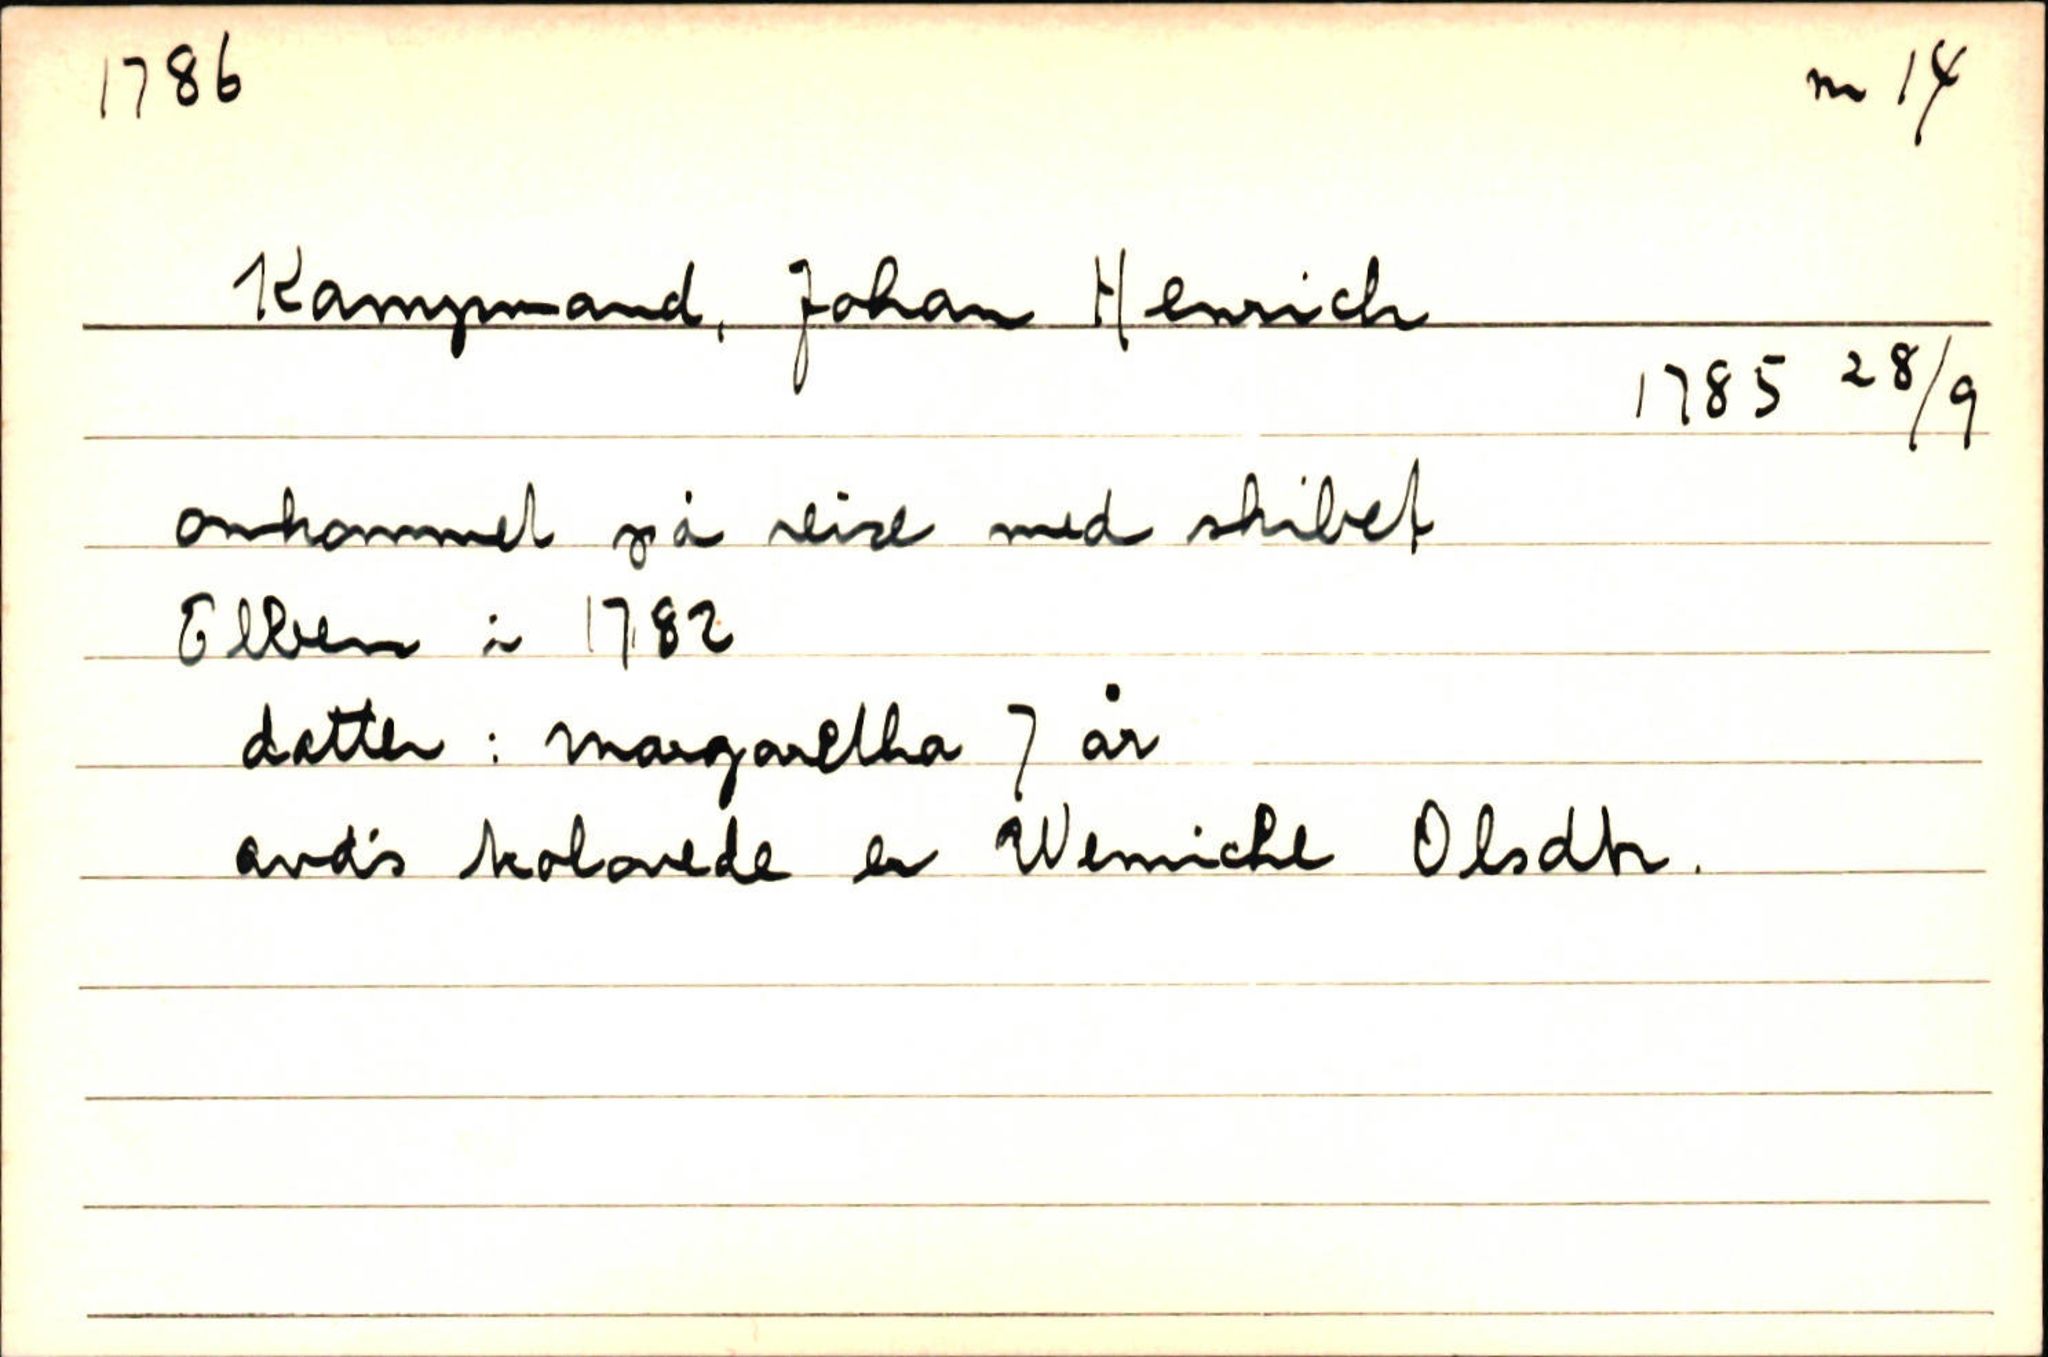 1786
nr 14
Kampmand, Johan Henrich
1785 28/9
omkommet på reise med skibet
Elben i 1782
datter: Margaretha 7 år
avd's trolovede er Wenniche Olsdtr.